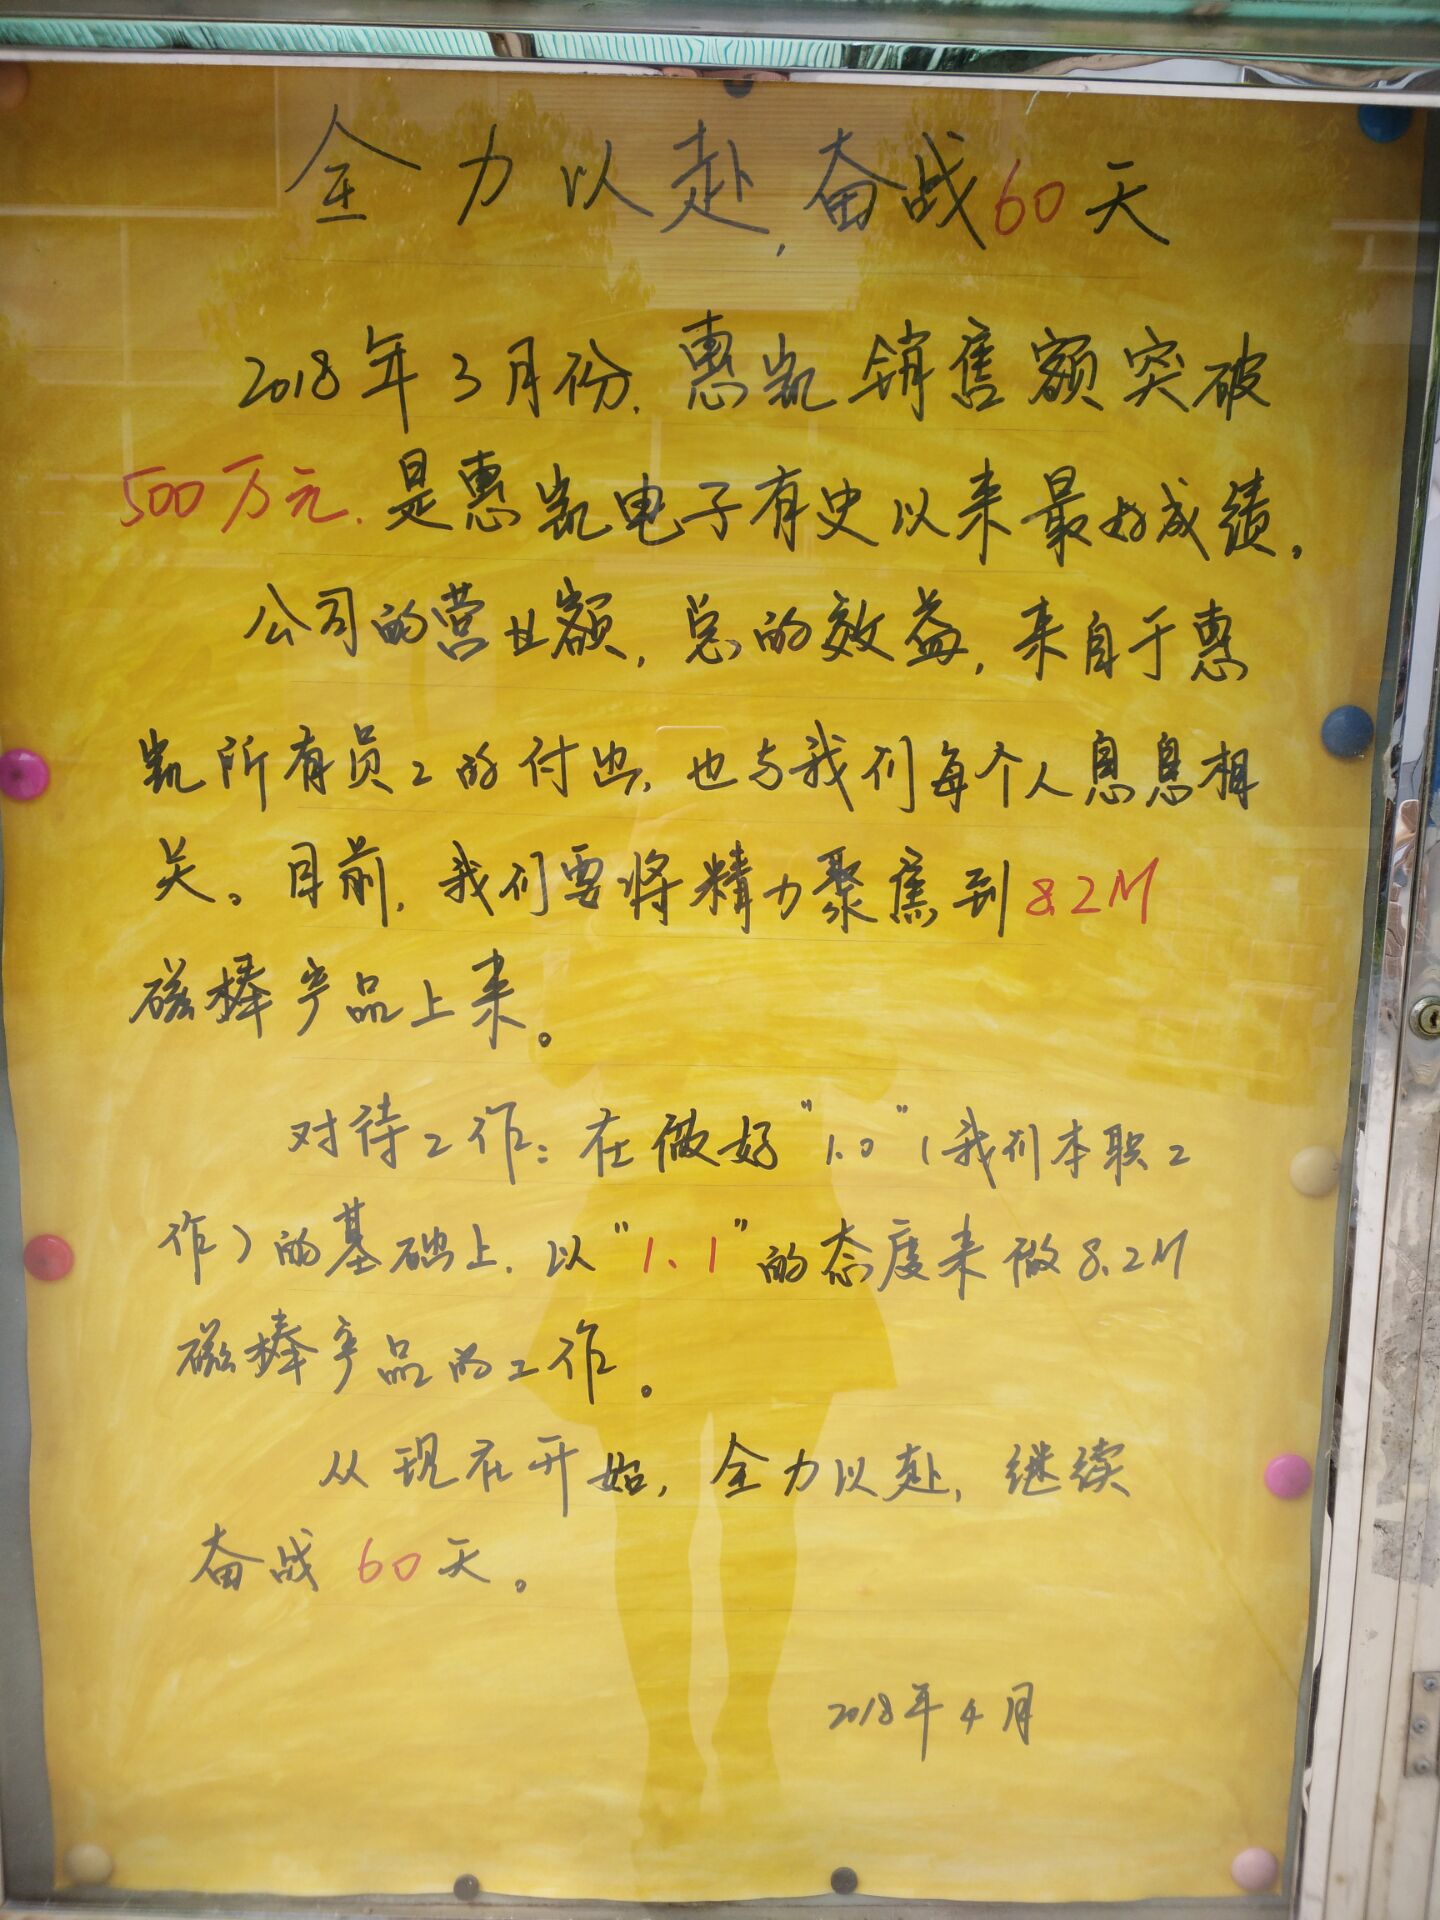 全力以赴,奋战60天
2018年3月份,惠凯销售额突破
500万元,是惠凯电子有史以来最好成绩。
公司的营业额,总的效益,来自于惠
凯所有员工的付出,也与我们每个人息息相
关。目前,我们要将精力聚焦到8.2M
磁棒产品上来。
对待工作:在做好"1.0"(我们本职工
作)的基础上,以"1.1"的态度来做8.2M
磁棒产品的工作。
从现在开始,全力以赴,继续
奋战60天。
2018年4月